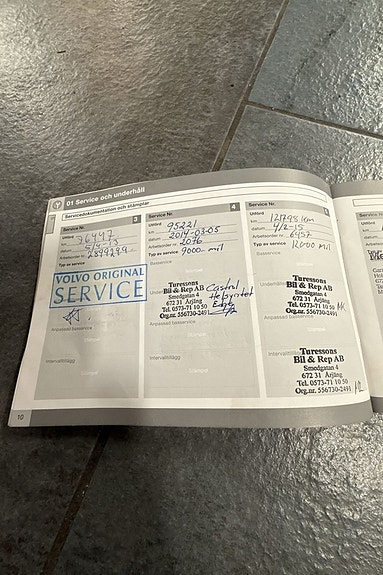 01 Service och underhåll
Servicedokumentation och stämplar
3
Service Nr.
Utförd
km 76447
datum
Arbetsorder nr.
Typ av service
VOLVO ORIGINAL
SERVICE
Anpassad basservice
Intervalltillägg
4
Service Nr.
Utförd
km 95221
datum 2014-03-05
Arbetsorder nr. 2076
Typ av service 9000 mil
Basservice
Turessons
Bil & Rep AB
Smedgatan 4
672 31 Årjäng
Tel. 0573-71 10 50
Org.nr. 556730-2491
Castrol
Helsyntet
Anpassad basservice
Intervalltillägg
5
Service Nr.
Utförd
km 121798 km
datum 4/2-15
Arbetsorder nr. 6457
Typ av service 12000 mil
Basservice
Turessons
Bil & Rep AB
Smedgatan 4
672 31 Årjäng
Tel. 0573-71 10 50
Org.nr. 556730-2491
Anpassad basservice
Intervalltillägg
Turessons
Bil & Rep AB
Smedgatan 4
672 31 Årjäng
Tel. 0573-71 10 50
Org.nr. 556730-2491
10